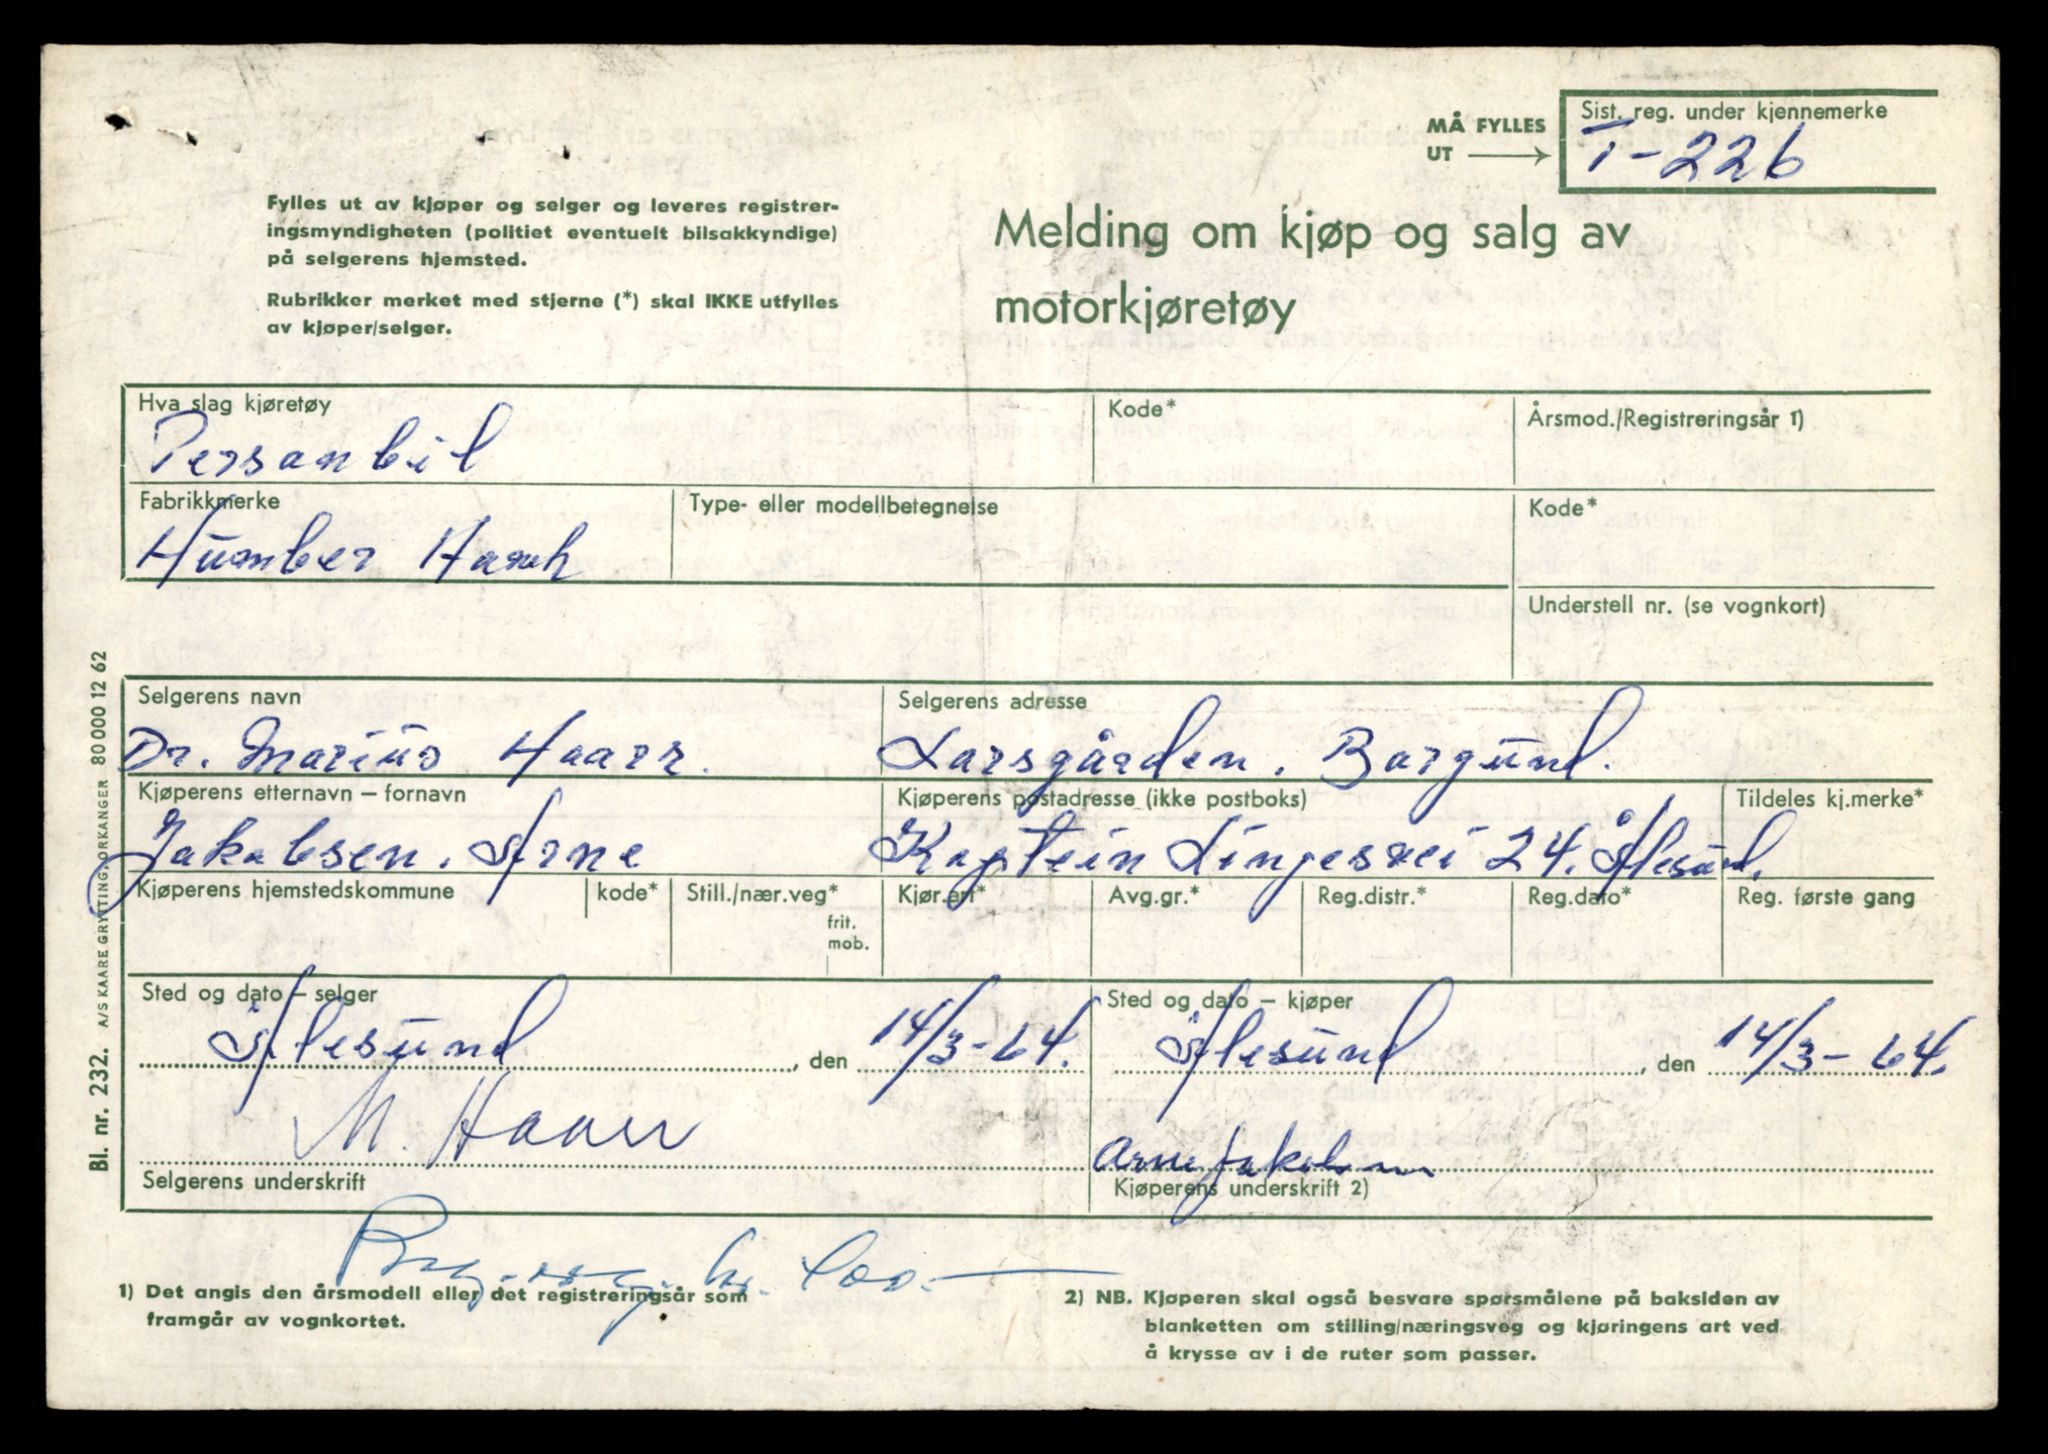 MÅ FYLLES
UT
Sist. reg. under kjennemerke
T-226
Fylles ut av kjøper og selger og leveres registrer-
ingsmyndigheten (politiet eventuelt bilsakkyndige)
på selgerens hjemsted.
Rubrikker merket med stjerne (*) skal IKKE utfylles
av kjøper/selger.
Melding om kjøp og salg av
motorkjøretøy
Hva slag kjøretøy
Personbil
Kode*
Årsmod./Registreringsår 1)
Fabrikkmerke
Humber Hawk
Type- eller modellbetegnelse
Kode*
Understell nr. (se vognkort)
Selgerens navn
Dr. Marius Haarr.
Selgerens adresse
Larsgården, Borgund.
Kjøperens etternavn – fornavn
Jakobsen, Arne
Kjøperens postadresse (ikke postboks)
Kaptein Lingesvei 24. Ålesund.
Tildeles kj.merke*
Kjøperens hjemstedskommune
kode*
Still./nær.veg*
frit.
mob.
Kjør.art*
Avg.gr.*
Reg.distr.*
Reg.dato*
Reg. første gang
Sted og dato – selger
Ålesund, den 14/3-64.
Sted og dato – kjøper
Ålesund, den 14/3-64.
M. Haarr
Selgerens underskrift
Arne Jakobsen
Kjøperens underskrift 2)
1) Det angis den årsmodell eller det registreringsår som
framgår av vognkortet.
2) NB. Kjøperen skal også besvare spørsmålene på baksiden av
blanketten om stilling/næringsveg og kjøringens art ved
å krysse av i de ruter som passer.
Bl. nr. 232. A/S KAARE GRYTTING, ORKANGER 80 000 12 62